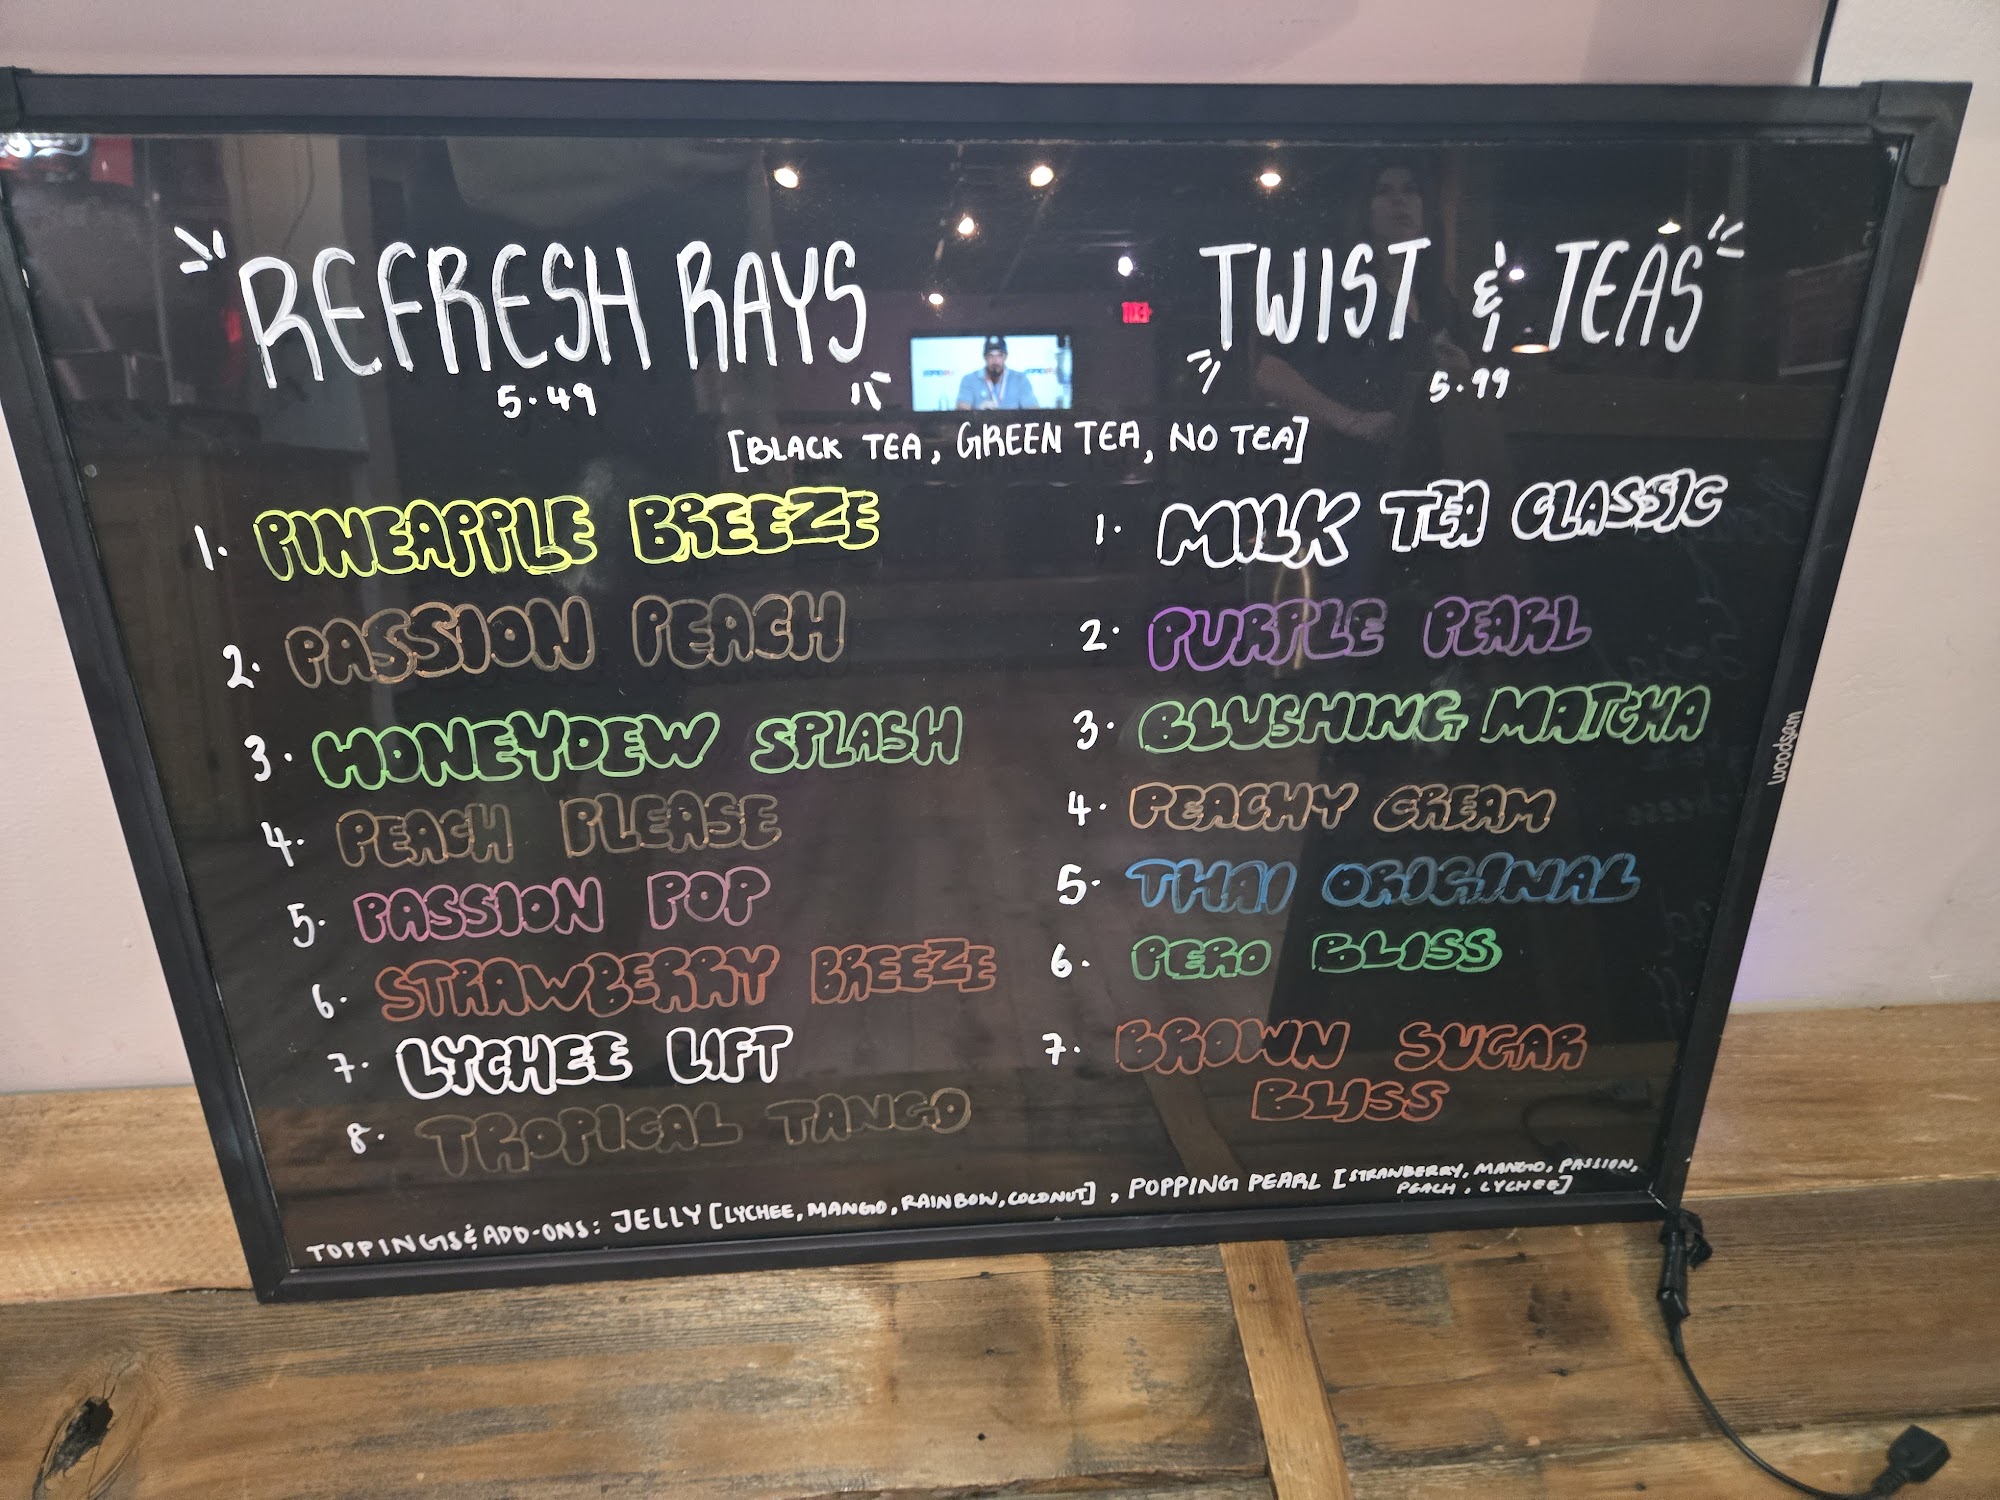 REFRESH RAYS
5.49
TWIST & TEAS
5.99
[BLACK TEA, GREEN TEA, NO TEA]
1. PINEAPPLE BREEZE
2. PASSION PEACH
3. HONEYDEW SPLASH
4. PEACH PLEASE
5. PASSION POP
6. STRAWBERRY BREEZE
7. LYCHEE LIFT
8. TROPICAL TANGO
1. MILK TEA CLASSIC
2. PURPLE PEARL
3. BLUSHING MATCHA
4. PEACHY CREAM
5. THAI ORIGINAL
6. PERO BLISS
7. BROWN SUGAR
BLISS
TOPPINGS & ADD-ONS: JELLY [LYCHEE, MANGO, RAINBOW, COCONUT], POPPING PEARL [STRAWBERRY, MANGO, PASSION,
PEACH, LYCHEE]
woodsam